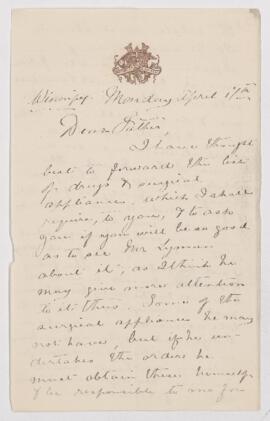 Winnipeg. Monday April
Dear Father,
I have thought
best to forward the list
of drugs & surgical
appliances which I shall
require, to you, & to ask
you if you will be so good
as to see Mr Lyman
about it, as I think he
may give more attention
to it thus. Some of the
surgical appliances he may
not have, but if he un-
dertakes the order he
must obtain them himself
& be responsible to me for